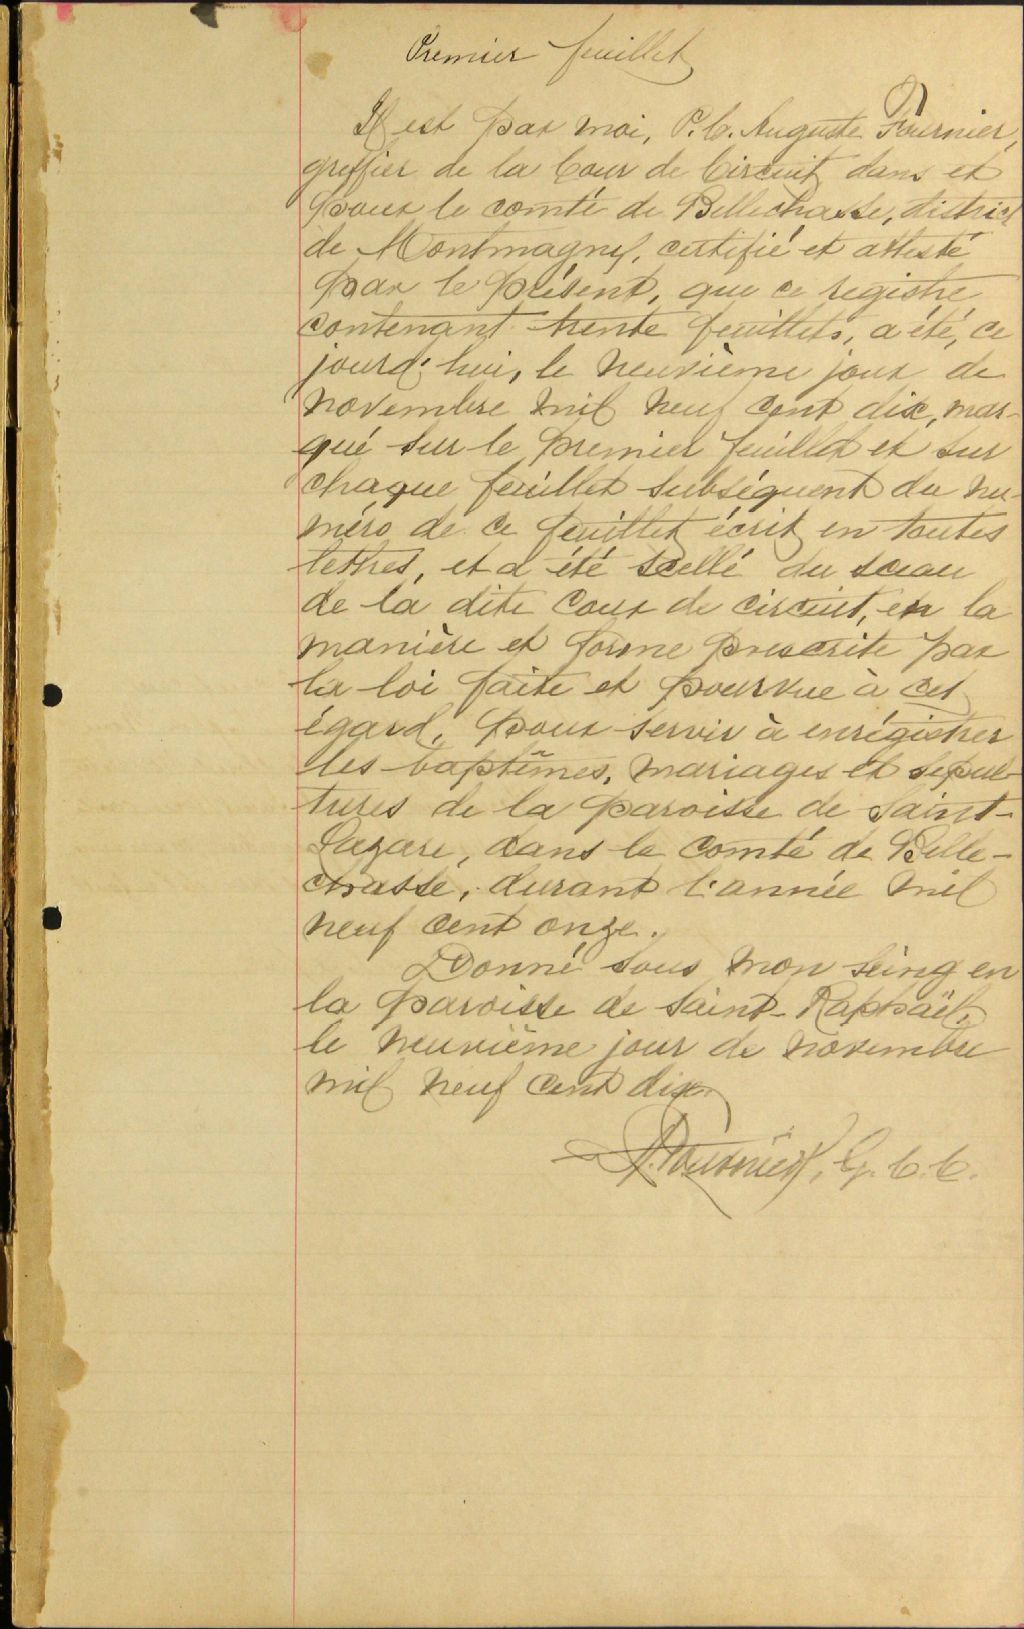 Premier feuillet
Il est par moi, P. C. Auguste Fournier,
greffier de la Cour de Circuit dans et
pour le comté de Bellechasse, district
de Montmagny, certifié et attesté
par le présent, que ce registre
contenant trente feuillets, a été, ce
jourd'hui, le neuvième jour de
novembre mil neuf cent dix, mar-
qué sur le premier feuillet et sur
chaque feuillet subséquent du nu-
méro de ce feuillet écrit en toutes
lettres, et a été scellé du sceau
de la dite cour de circuit, en la
manière et forme prescrite par
la loi faite et pourvue à cet
égard, pour servir à enrégistrer
les baptêmes, mariages et sépul-
tures de la paroisse de Saint-
Lazare, dans le comté de Belle-
chasse, durant l'année mil
neuf cent onze.
Donné sous mon seing en
la paroisse de Saint-Raphaël,
le neuvième jour de novembre
mil neuf cent dix.
A. Fournier, G. C. C.